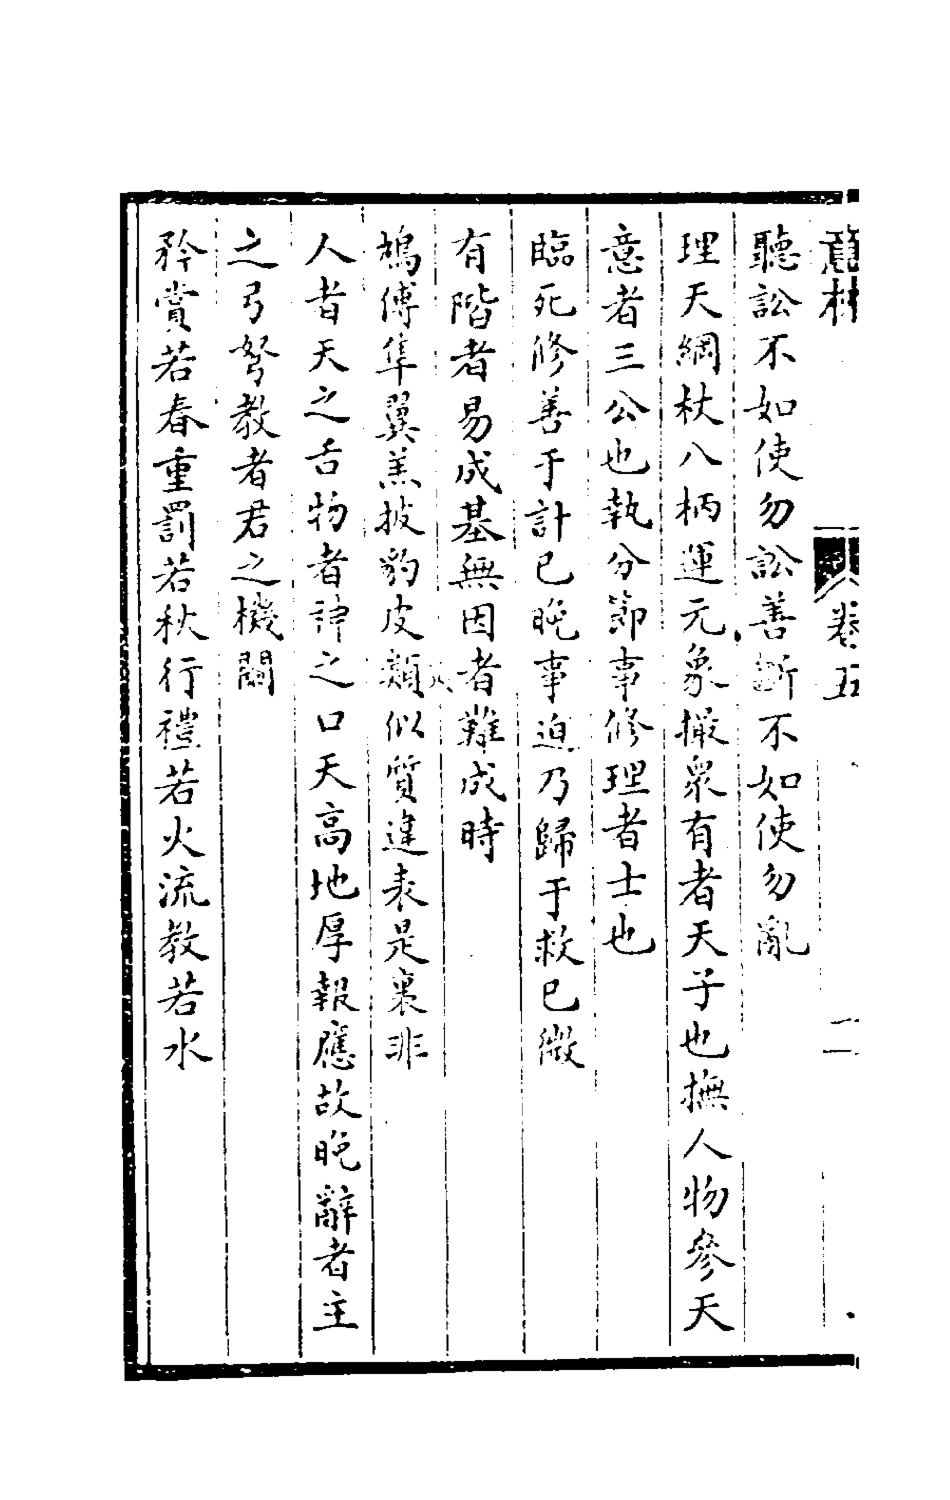 意林
卷五
二
聽訟不如使勿訟善斷不如使勿亂
理天綱杖八柄運元象撮衆有者天子也撫人物參天
意者三公也執分節事修理者士也
臨死修善于計已晚事迫乃歸于救已微
有階者易成基無因者難成時
鴆傅隼翼羔披豹皮類似質違表是裏非
人者天之舌物者神之口天高地厚報應故晚辭者主
之弓弩教者君之機關
矜賞若春重罰若秋行禮若火流教若水